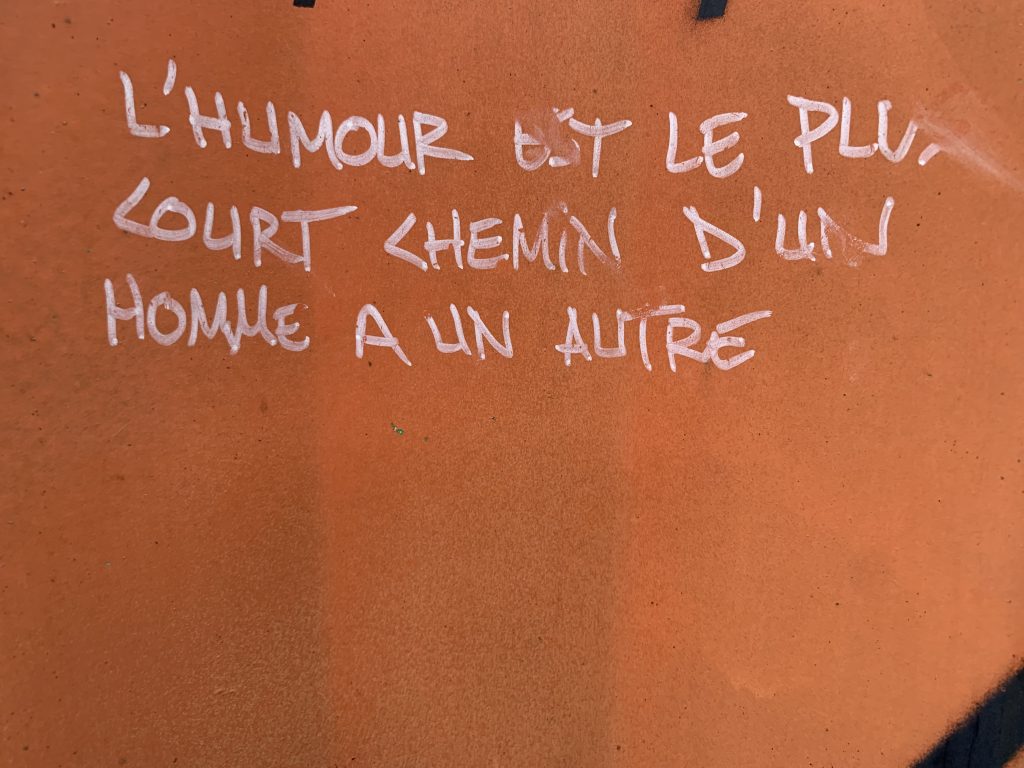 L'HUMOUR EST LE PLUS
COURT CHEMIN D'UN
HOMME A UN AUTRE